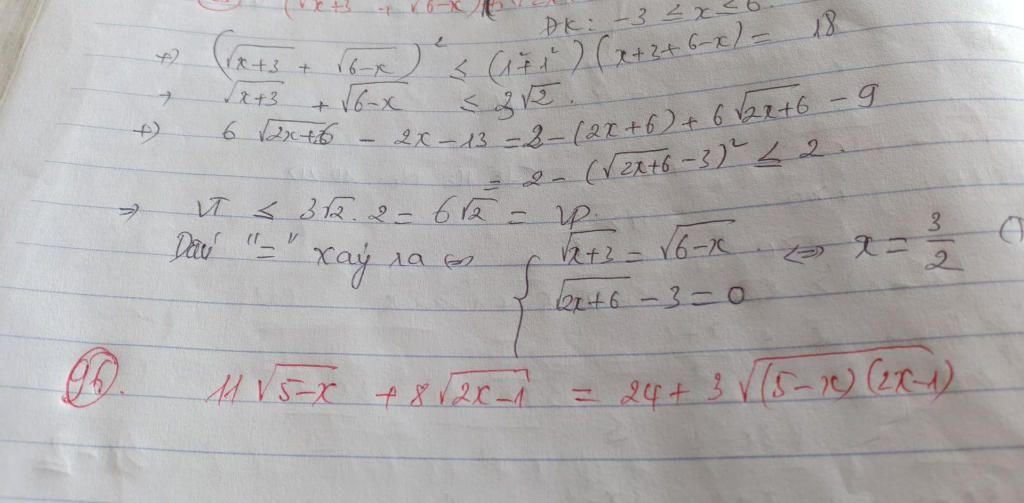 (√x+3 + √6-x)
ĐK: -3 ≤ x ≤ 6.
+) (√x+3 + √6-x)² ≤ (1²+1²)(x+3+6-x) = 18
→ √x+3 + √6-x ≤ 3√2.
+) 6√2x+6 - 2x - 13 = 2 - (2x+6) + 6√2x+6 - 9
= 2 - (√2x+6 - 3)² ≤ 2.
⇒ VT ≤ 3√2 . 2 = 6√2 = VP.
Dấu "=" xảy ra ⇔ { √x+3 = √6-x ⇔ x = 3/2
√2x+6 - 3 = 0
96. 11√5-x + 8√2x-1 = 24 + 3√(5-x)(2x-1)